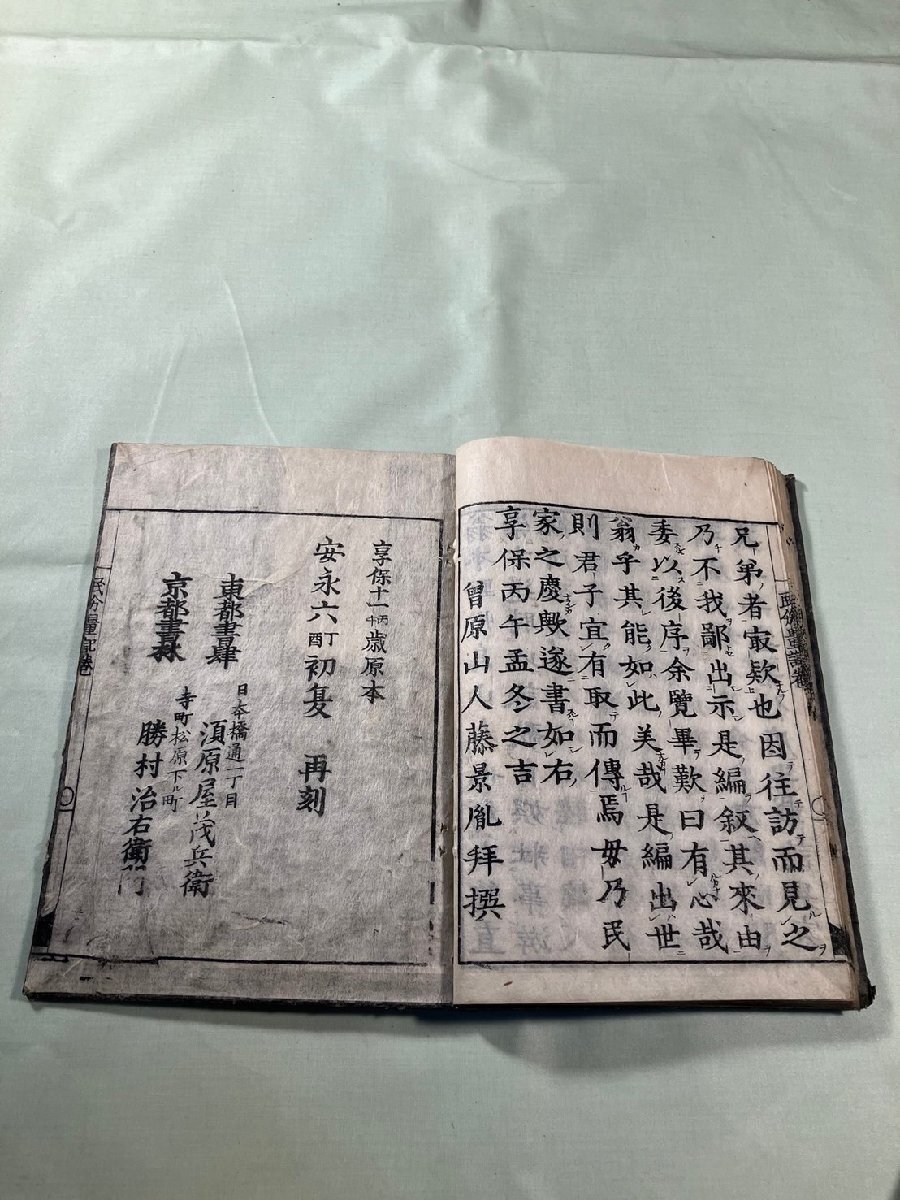 兄弟者寂欵也因往訪而見之
乃不我鄙出示是編叙其來由
委以後序余覽畢歎曰有心哉
翁乎其能如此美哉是編出世
則君子宜有取而傳焉毋乃民
家之慶歟遂書如右
享保丙午孟冬之吉
曾原山人藤景胤拜撰
享保十一丙午歳原本
安永六丁酉初夏 再刻
東都書肆
日本橋通一丁目
須原屋茂兵衛
京都書林
寺町松原下ル町
勝村治右衛門
民分量記巻